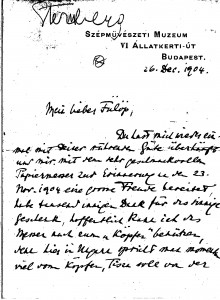 Szépművészeti Muzeum
VI Állatkerti-út
Budapest.
26. Dec. 1904.
Mein lieber Fülöp,
Du hast mich wieder ein-
mal mit Deiner rührenden Güte überhäuft
und mir mit dem sehr geschmackvollen
Papiermesser zur Erinnerung an den 23.
Nov. 1904 eine grosse Freude bereitet.
Habe tausend innigen Dank für das
Geschenk, hoffentlich
Messer nach zum Köpfen
denn hier in spricht man
viel vom Köpfen, soll von der